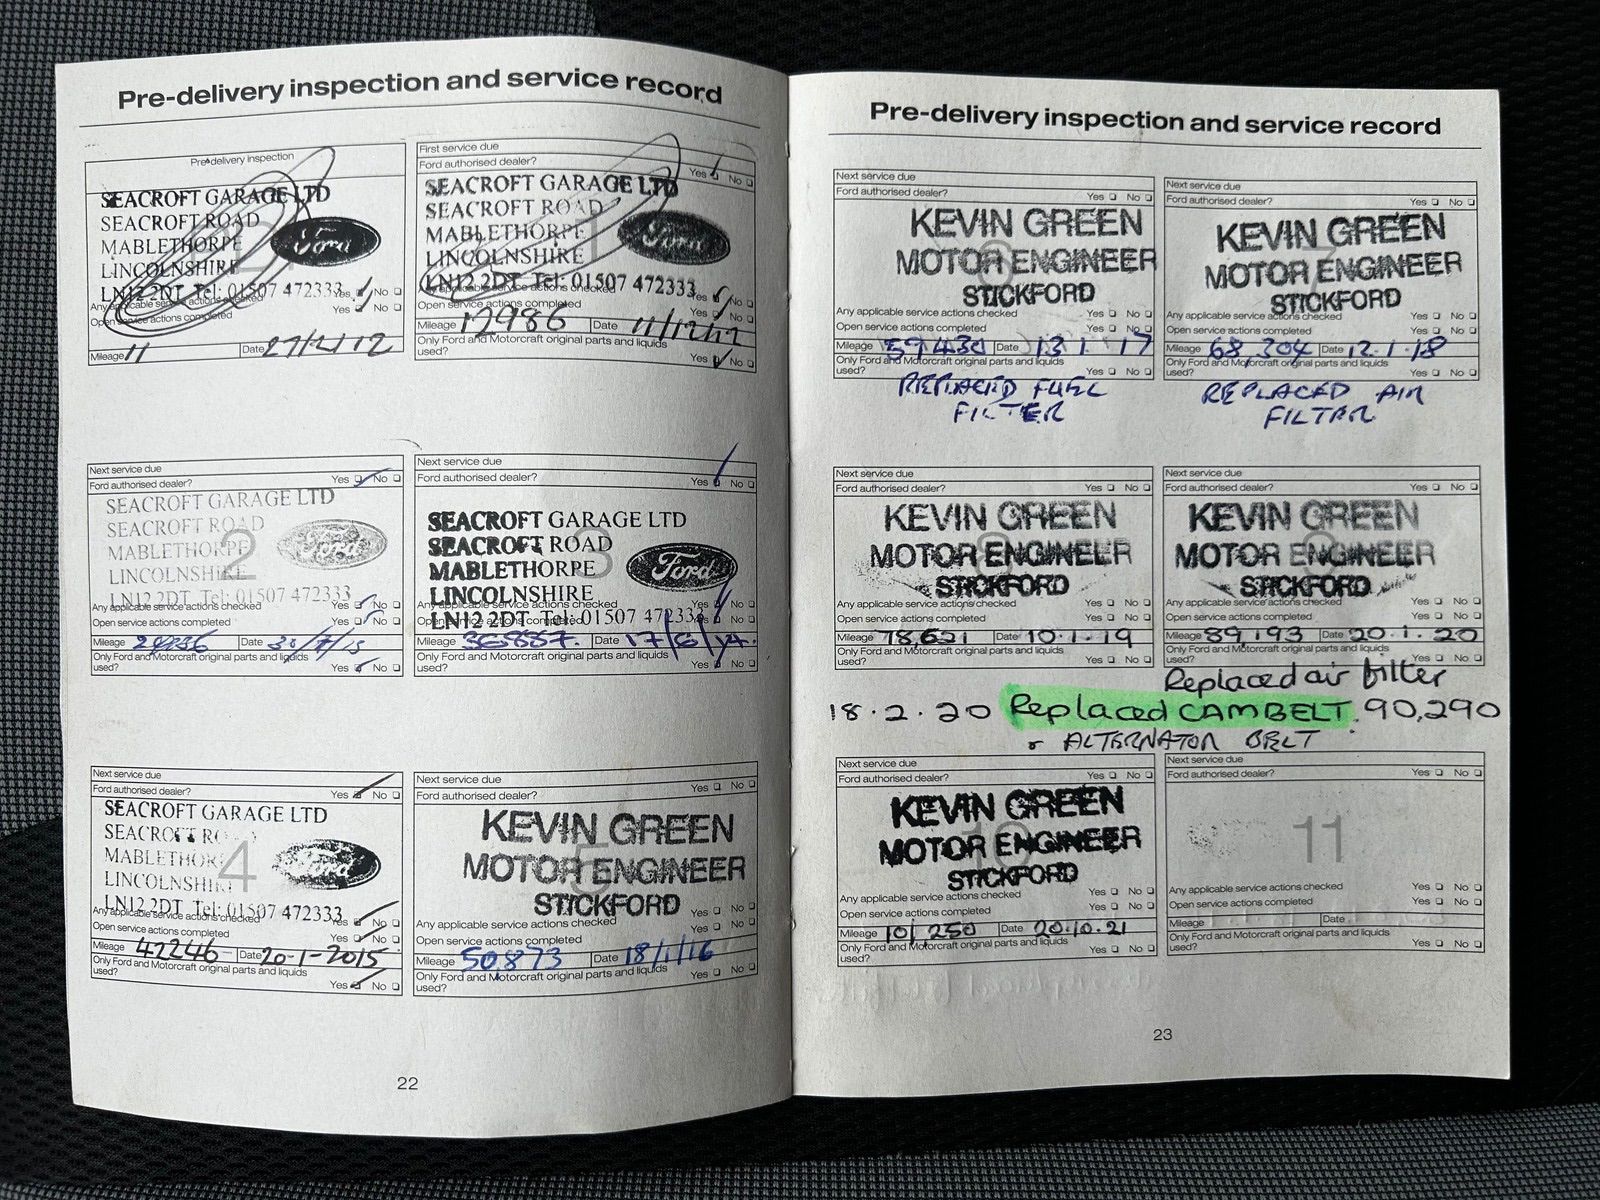 Pre-delivery inspection and service record
Pre-delivery inspection
SEACROFT GARAGE LTD
SEACROFT ROAD
MABLETHORPE
LINCOLNSHIRE
LN12 2DT Tel: 01507 472333
Ford
Any applicable service actions checked Yes No
Open service actions completed Yes No
Mileage 11 Date
First service due
Ford authorised dealer? Yes No
SEACROFT GARAGE LTD
SEACROFT ROAD
MABLETHORPE
LINCOLNSHIRE
LN12 2DT Tel: 01507 472333
Ford
1
Any applicable service actions checked Yes No
Open service actions completed Yes No
Mileage 12986 Date 11/12/12
Only Ford and Motorcraft original parts and liquids
used? Yes No
Next service due
Ford authorised dealer? Yes No
SEACROFT GARAGE LTD
SEACROFT ROAD
MABLETHORPE
LINCOLNSHIRE
LN12 2DT Tel: 01507 472333
Ford
2
Any applicable service actions checked Yes No
Open service actions completed Yes No
Mileage Date 30/7/13
Only Ford and Motorcraft original parts and liquids
used? Yes No
Next service due
Ford authorised dealer? Yes No
SEACROFT GARAGE LTD
SEACROFT ROAD
MABLETHORPE
LINCOLNSHIRE
LN12 2DT Tel: 01507 472333
Ford
3
Any applicable service actions checked Yes No
Open service actions completed Yes No
Mileage 36887. Date 17/6/14.
Only Ford and Motorcraft original parts and liquids
used? Yes No
Next service due
Ford authorised dealer? Yes No
SEACROFT GARAGE LTD
SEACROFT RO
MABLETHOR
LINCOLNSHI
LN12 2DT Tel: 01507 472333
Ford
4
Any applicable service actions checked Yes No
Open service actions completed Yes No
Mileage 42246 Date 20-1-2015
Only Ford and Motorcraft original parts and liquids
used? Yes No
Next service due
Ford authorised dealer? Yes No
KEVIN GREEN
MOTOR ENGINEER
STICKFORD
5
Any applicable service actions checked Yes No
Open service actions completed
Mileage 50,873 Date 18/1/16
Only Ford and Motorcraft original parts and liquids
used? Yes No
22
Pre-delivery inspection and service record
Next service due
Ford authorised dealer? Yes No
KEVIN GREEN
MOTOR ENGINEER
STICKFORD
6
Any applicable service actions checked Yes No
Open service actions completed Yes No
Mileage 59430 Date 13 1 17
Only Ford and Motorcraft original parts and liquids
used? Yes No
REPLACED FUEL
FILTER
Next service due
Ford authorised dealer? Yes No
KEVIN GREEN
MOTOR ENGINEER
STICKFORD
7
Any applicable service actions checked Yes No
Open service actions completed Yes No
Mileage 68,304 Date 12.1.18
Only Ford and Motorcraft original parts and liquids
used? Yes No
REPLACED AIR
FILTER
Next service due
Ford authorised dealer? Yes No
KEVIN GREEN
MOTOR ENGINEER
STICKFORD
8
Any applicable service actions checked Yes No
Open service actions completed Yes No
Mileage 78,621 Date 10.1.19
Only Ford and Motorcraft original parts and liquids
used? Yes No
Next service due
Ford authorised dealer? Yes No
KEVIN GREEN
MOTOR ENGINEER
STICKFORD
9
Any applicable service actions checked Yes No
Open service actions completed Yes No
Mileage 89,193 Date 20.1.20
Only Ford and Motorcraft original parts and liquids
used? Yes No
Replaced air filter
18.2.20 Replaced CAMBELT. 90,290
& ALTERNATOR BELT
Next service due
Ford authorised dealer? Yes No
KEVIN GREEN
MOTOR ENGINEER
STICKFORD
10
Any applicable service actions checked Yes No
Open service actions completed Yes No
Mileage 101,250 Date 20.10.21
Only Ford and Motorcraft original parts and liquids
used? Yes No
Next service due
Ford authorised dealer? Yes No
11
Any applicable service actions checked Yes No
Open service actions completed Yes No
Mileage Date
Only Ford and Motorcraft original parts and liquids
used? Yes No
23